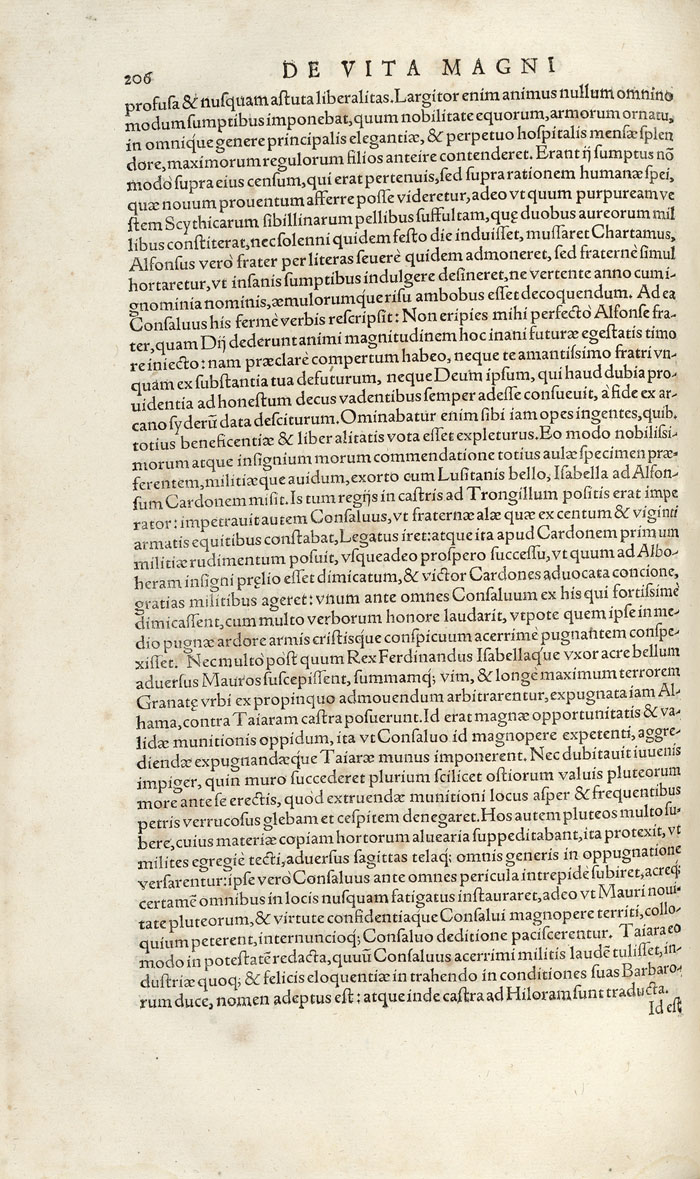 206 DE VITA MAGNI
profuſa & nuſquam aſtuta liberalitas. Largitor enim animus nullum omnino
modum ſumptibus imponebat, quum nobilitate equorum, armorum ornatu,
in omnique genere principalis elegantiæ, & perpetuo hoſpitalis menſæ ſplen
dore, maximorum regulorum filios anteire contenderet. Erant ij ſumptus nõ
modò ſupra eius cenſum, qui erat pertenuis, ſed ſupra rationem humanæ ſpei,
quæ nouum prouentum afferre poſſe videretur, adeo vt quum purpuream ve
ſtem Scythicarum ſibillinarum pellibus ſuffultam, quę duobus aureorum mil
libus conſtiterat, nec ſolenni quidem feſto die induiſſet, muſſaret Chartamus,
Alfonſus verò frater per literas ſeuerè quidem admoneret, ſed fraternè ſimul
hortaretur, vt inſanis ſumptibus indulgere deſineret, ne vertente anno cum i-
gnominia nominis, æmulorumque riſu ambobus eſſet decoquendum. Ad ea
Conſaluus his fermè verbis reſcripſit: Non eripies mihi perfectò Alfonſe fra-
ter, quam Dij dederunt animi magnitudinem hoc inani futuræ egeſtatis timo
re iniecto: nam præclarè compertum habeo, neque te amantiſsimo fratri vn-
quàm ex ſubſtantia tua defuturum, neque Deum ipſum, qui haud dubia pro-
uidentia ad honeſtum decus vadentibus ſemper adeſſe conſueuit, à fide ex ar-
cano ſyderũ data deſciturum. Ominabatur enim ſibi iam opes ingentes, quib.
totius beneficentiæ & liberalitatis vota eſſet expleturus. Eo modo nobiliſsi-
morum atque inſignium morum commendatione totius aulæ ſpecimen præ-
ferentem, militiæque auidum, exorto cum Luſitanis bello, Iſabella ad Alfon-
ſum Cardonem miſit. Is tum regijs in caſtris ad Trongillum poſitis erat impe
rator: impetrauit autem Conſaluus, vt fraternæ alæ quæ ex centum & viginti
armatis equitibus conſtabat, Legatus iret: atque ita apud Cardonem primum
militiæ rudimentum poſuit, vſqueadeo proſpero ſucceſſu, vt quum ad Albo-
heram inſigni prẹlio eſſet dimicatum, & victor Cardones aduocata concione,
gratias militibus ageret: vnum ante omnes Conſaluum ex his qui fortiſsimè
dimicaſſent, cum multo verborum honore laudarit, vtpote quem ipſe in me-
dio pugnæ ardore armis criſtisque conſpicuum acerrimè pugnantem conſpe-
xiſſet. Nec multò poſt quum Rex Ferdinandus Iſabellaque vxor acre bellum
aduerſus Mauros ſuſcepiſſent, ſummamq; vim, & longè maximum terrorem
Granatę vrbi ex propinquo admouendum arbitrarentur, expugnata iam Al-
hama, contra Taiaram caſtra poſuerunt. Id erat magnæ opportunitatis & va-
lidæ munitionis oppidum, ita vt Conſaluo id magnopere expetenti, aggre-
diendæ expugnandæque Taiaræ munus imponerent. Nec dubitauit iuuenis
impiger, quin muro ſuccederet plurium ſcilicet oſtiorum valuis pluteorum
more ante ſe erectis, quòd extruendæ munitioni locus aſper & frequentibus
petris verrucoſus glebam et ceſpitem denegaret. Hos autem pluteos multo ſu-
bere, cuius materiæ copiam hortorum aluearia ſuppeditabant, ita protexit, vt
milites egregiè tecti, aduerſus ſagittas telaq; omnis generis in oppugnatione
verſarentur: ipſe verò Conſaluus ante omnes pericula intrepidè ſubiret, acreq;
certamẽ omnibus in locis nuſquam fatigatus inſtauraret, adeo vt Mauri noui-
tate pluteorum, & virtute confidentiaque Conſalui magnopere territi, collo-
quium peterent, internuncioq; Conſaluo deditione paciſcerentur. Taiara eo
modo in poteſtatẽ redacta, quuũ Conſaluus acerrimi militis laudẽ tuliſſet, in-
duſtriæ quoq; & felicis eloquentiæ in trahendo in conditiones ſuas Barbaro-
rum duce, nomen adeptus eſt: atque inde caſtra ad Hiloram ſunt traducta.
Id eſt